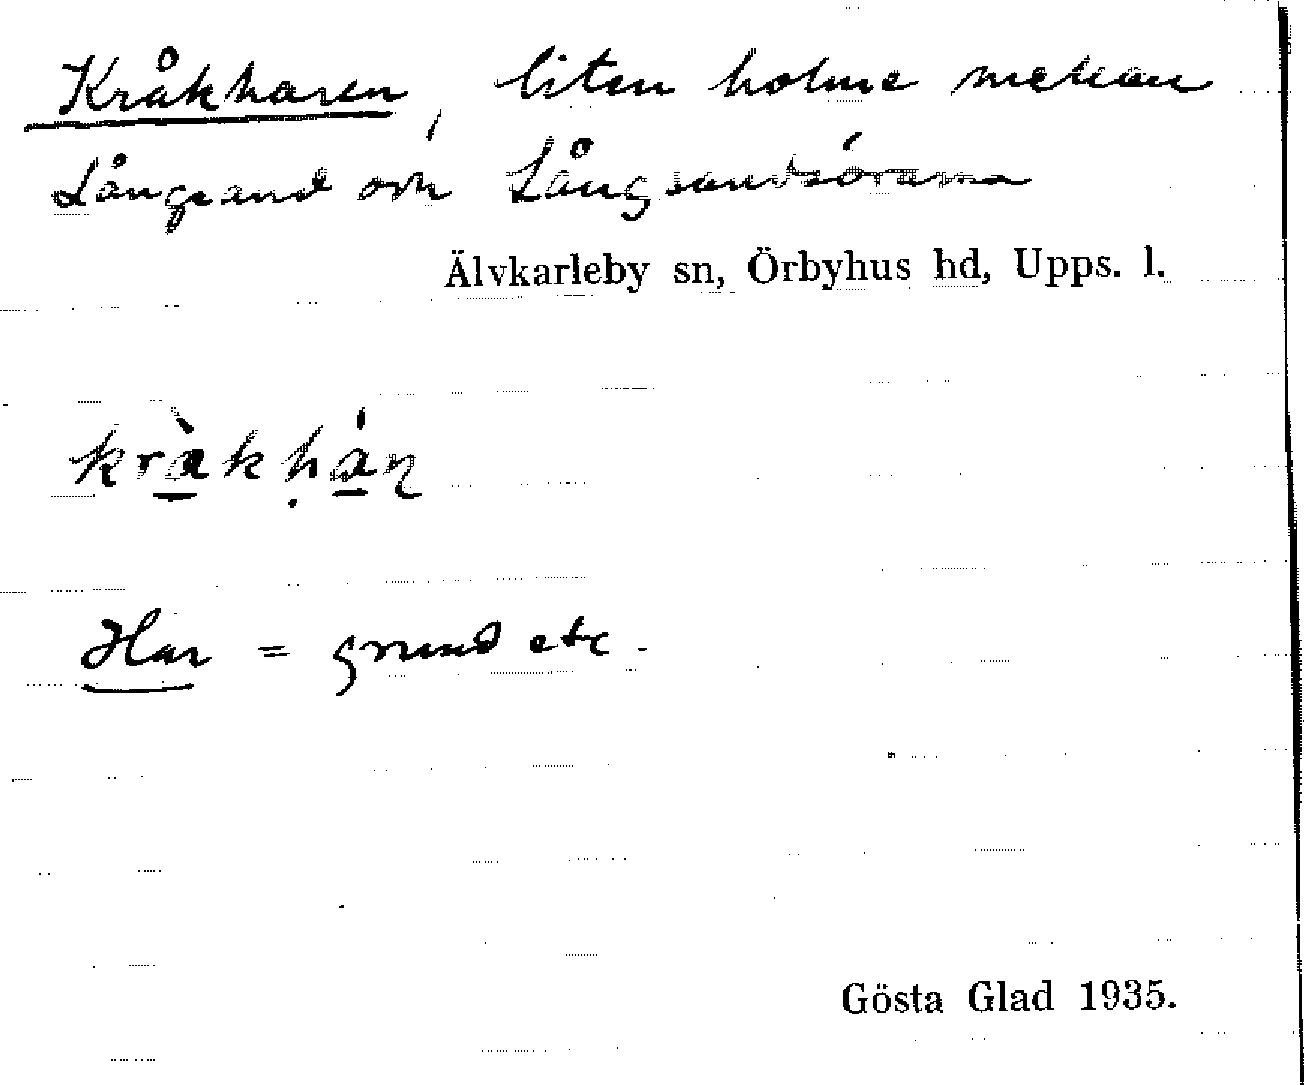 Kråkharen, liten holme mellan
Långsand och Långsandsörarna
Älvkarleby sn, Örbyhus hd, Upps. l.
kràkḥáɳ
Har = grund etc.
Gösta Glad 1935.